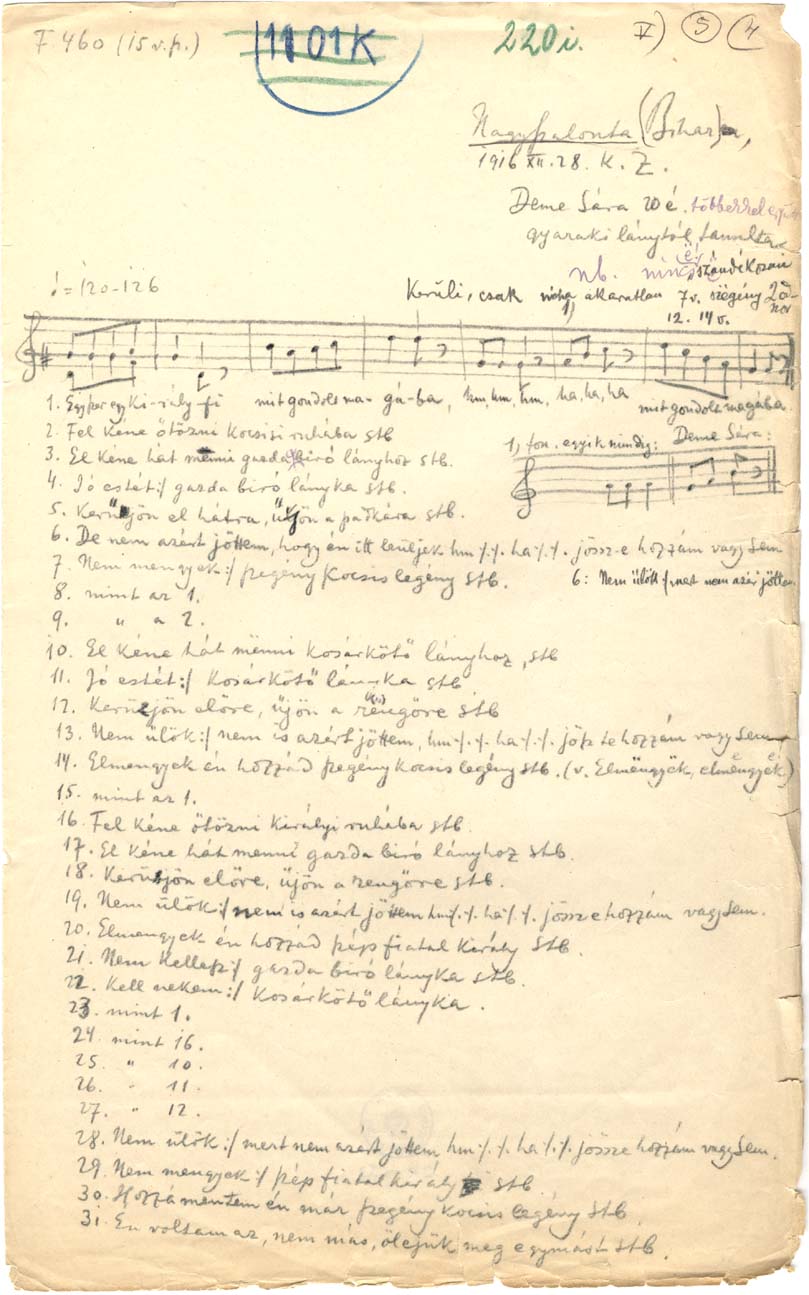 F 460 (15 v.p.) 1101K 220i. V) 5 (4
Nagyszalonta (Bihar),
1916 XII. 28. K. Z.
Deme Sára 20 é. többekkel együtt
gyaraki lánytól tanulta
nb. nincs ë, szándékosan
♩ = 120-126
Kerüli, csak néha akaratlan 7v. szegény
12. 14v.
1. Egyszer egy Ki-rály-fi mit gondolt ma-gá-ba, hm, hm, hm, ha, ha, ha mit gondolt magába
2. Fel kéne ötözni Kocsisi ruhába stb
1, fon. egyik mindig: Deme Sára:
3. El kéne hát menni gazda biró lányhoz stb.
4. Jó estét :/ gazda biró lányka stb.
5. Kerüjön el hátra, üjön a padkára stb.
6. De nem azért jöttem, hogy én itt leüljek hm ·/· ·/· ha ·/· ·/· jössz-e hozzám vagy sem
7. Nem mengyek :/ szegény Kocsis legény stb.
6: Nem ülök :/ mert nem azér jöttem
8. mint az 1.
9. " a 2.
10. El kéne hát mënni Kosárkötő lányhoz, stb
11. Jó estét :/ Kosárkötő lányka stb
12. Kerüjön előre, üjön a rengőre stb
13. Nem ülök :/ nem is azért jöttem, hm ·/· ·/· ha ·/· ·/· jösz te hozzám vagy sem
14. Elmengyek én hozzád szegény kocsis legény stb. (v. Elmëngyëk, elmëngyëk)
15. mint az 1.
16. Fel kéne ötözni Királyi ruhába stb.
17. El kéne hát menni gazda biró lányhoz stb.
18. Kerüjön előre, üjön a rengőre stb.
19. Nem ülök :/ nem is azért jöttem hm ·/· ·/· ha ·/· ·/· jössze hozzám vagy sem.
20. Elmengyek én hozzád szép fiatal Király stb.
21. Nem Kellesz :/ gazda biró lányka stb.
22. Kell nekem :/ Kosárkötő lányka.
23. mint 1.
24. mint 16.
25. " 10.
26. " 11.
27. " 12.
28. Nem ülök :/ mert nem azért jöttem hm ·/· ·/· ha ·/· ·/· jössze hozzám vagy sem.
29. Nem mengyek :/ szép fiatal király stb
30. Hozzá mentem én már szegény kocsis legény stb.
31. En voltam az, nem más, öleljük meg egymást stb.